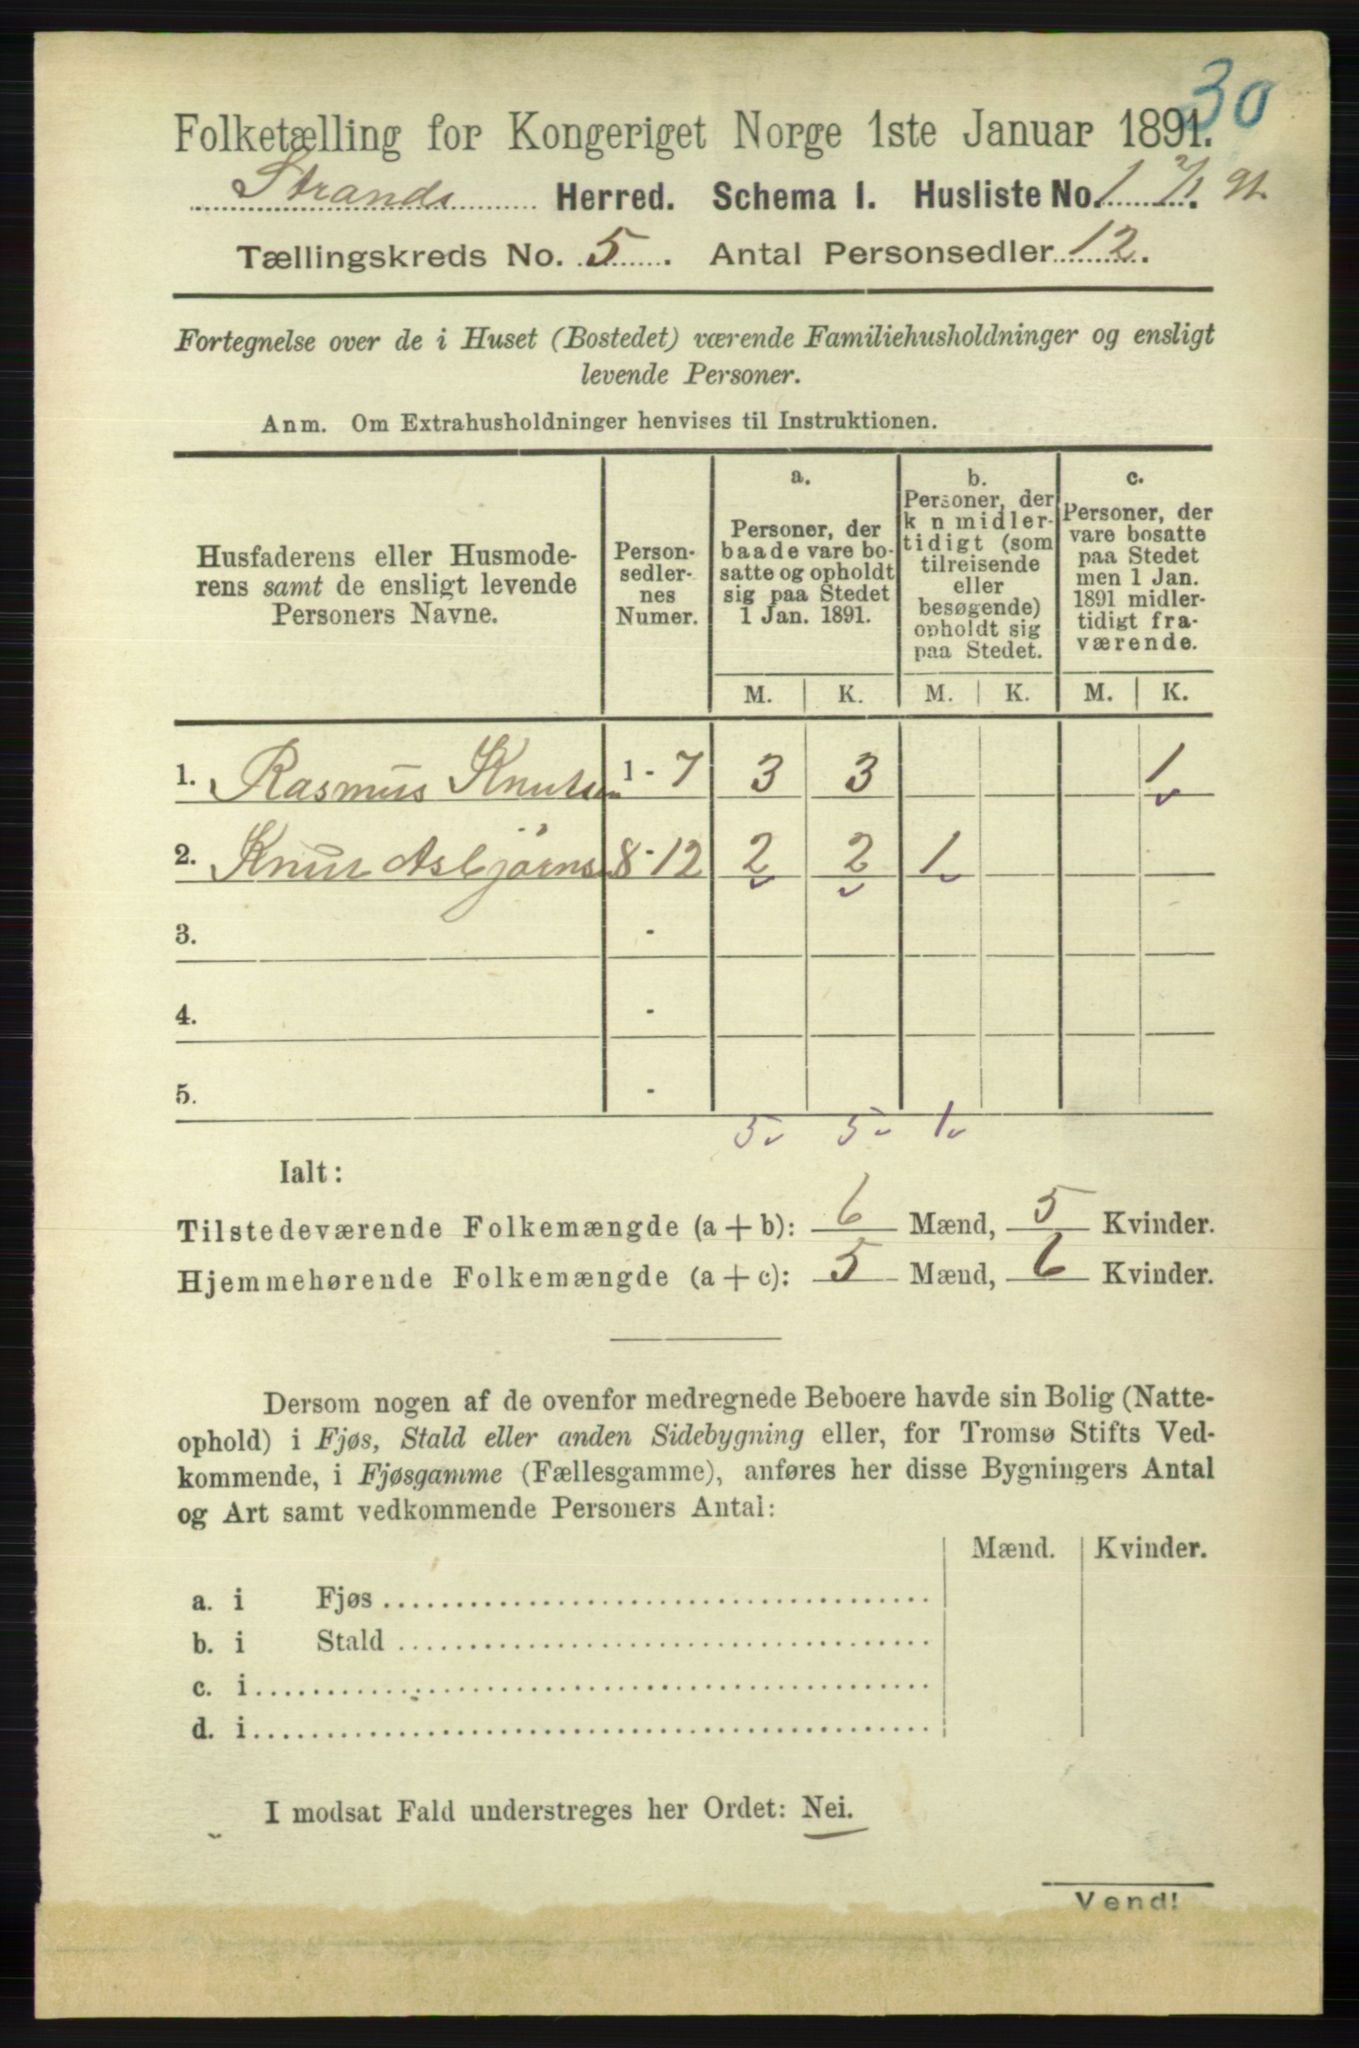 30
Folketælling for Kongeriget Norge 1ste Januar 1891.
Strands Herred. Schema I. Husliste No. 1 2/1 91.
Tællingskreds No. 5. Antal Personsedler 12.
Fortegnelse over de i Huset (Bostedet) værende Familiehusholdninger og ensligt
levende Personer.
Anm. Om Extrahusholdninger henvises til Instruktionen.
Husfaderens eller Husmode-
rens samt de ensligt levende
Personers Navne.
Person-
sedler-
nes
Numer.
a.
Personer, der
baade vare bo-
satte og opholdt
sig paa Stedet
1 Jan. 1891.
b.
Personer, der
k n midler-
tidigt (som
tilreisende
eller
besøgende)
opholdt sig
paa Stedet.
c.
Personer, der
vare bosatte
paa Stedet
men 1 Jan.
1891 midler-
tidigt fra-
værende.
M. K. M. K. M. K.
1. Rasmus Knutsen 1 - 7 3 3 1
2. Knut Asbjørns 8 - 12 2 2 1
3. -
4. -
5. -
5 5 1
Ialt:
Tilstedeværende Folkemængde (a + b): 6 Mænd, 5 Kvinder.
Hjemmehørende Folkemængde (a + c): 5 Mænd, 6 Kvinder.
Dersom nogen af de ovenfor medregnede Beboere havde sin Bolig (Natte-
ophold) i Fjøs, Stald eller anden Sidebygning eller, for Tromsø Stifts Ved-
kommende, i Fjøsgamme (Fællesgamme), anføres her disse Bygningers Antal
og Art samt vedkommende Personers Antal:
Mænd. Kvinder.
a. i Fjøs
b. i Stald
c. i
d. i
I modsat Fald understreges her Ordet: Nei.
Vend!